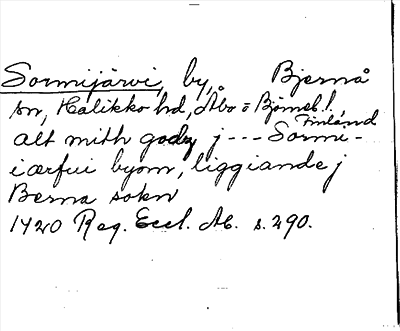 Sormijärvi, by, Bjernå
sn, Halikko hd, Åbo o Björneb. l.,
Finland
alt mith godz j --- Sormi-
iærfui byom, liggiande j
Berna sokn
1420 Reg. Eccl. Ab. s. 290.